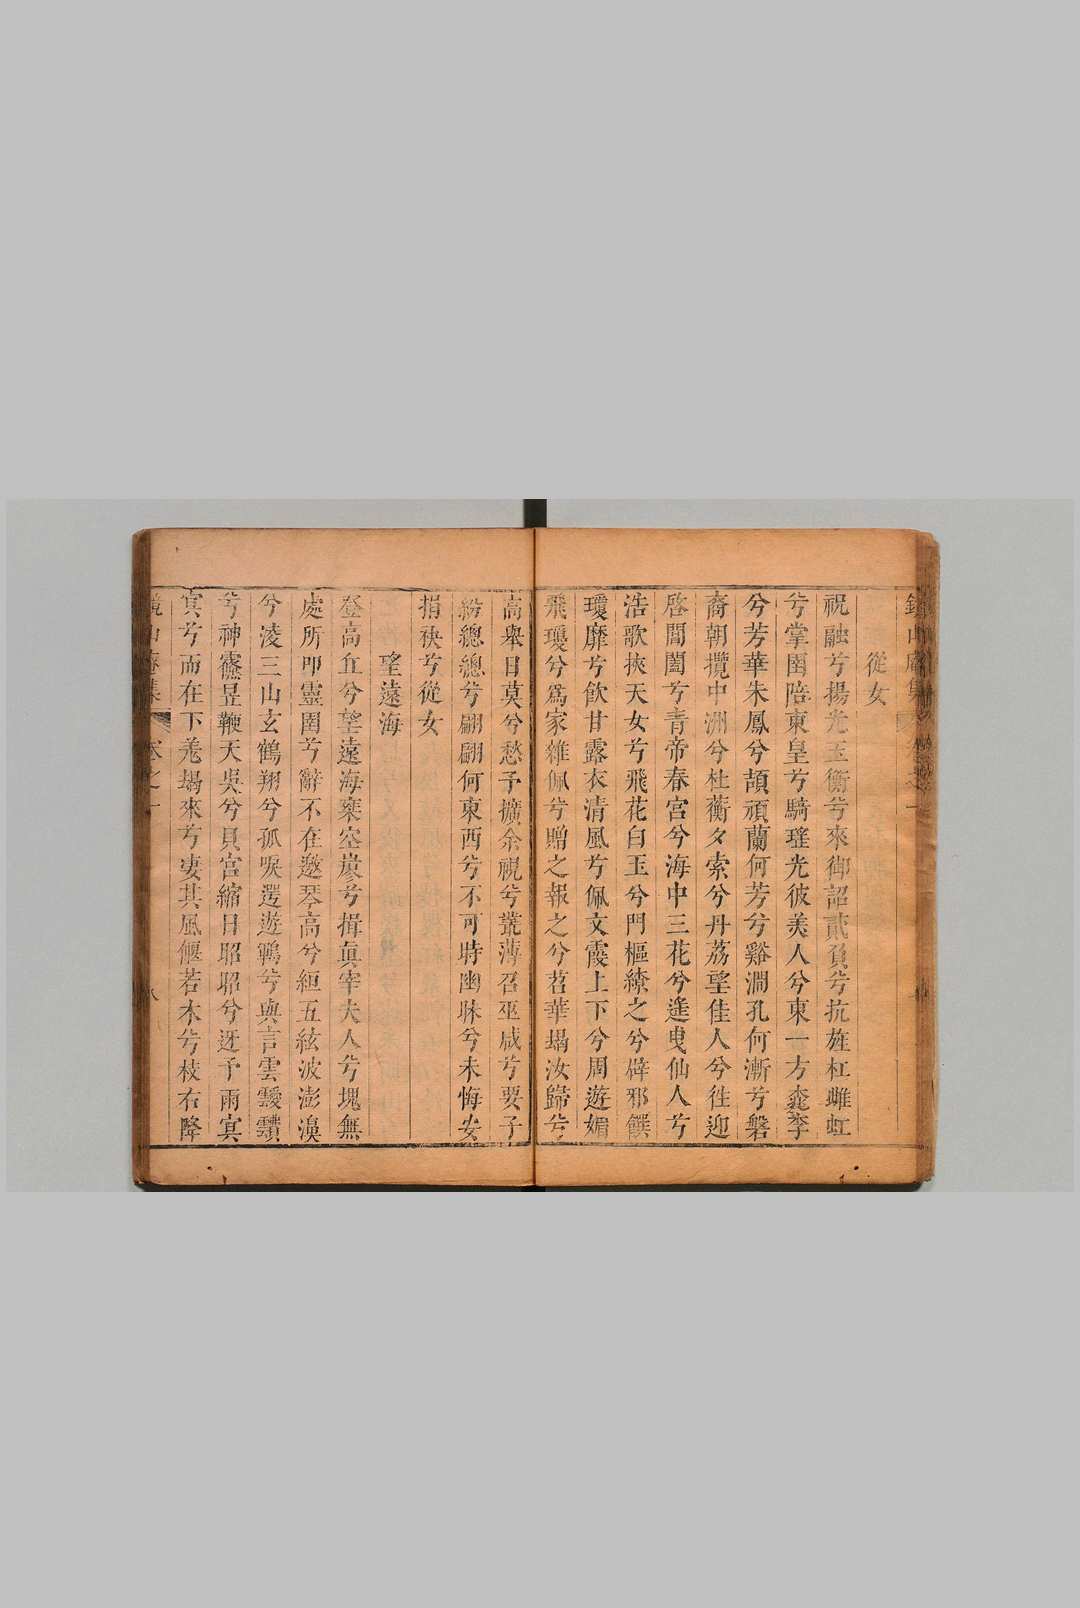 從女
祝融兮揚光玉衡兮來御詔貳負兮抗旌杠雌虹
兮掌圉陪東皇兮騎瑤光彼美人兮東一方李
兮芳華朱鳳兮頡頏蘭何芳兮谿澗孔何漸兮磐
裔朝攬中洲兮杜蘅夕索兮丹荔望佳人兮往迎
啓閶闔兮青帝春宮兮海中三花兮遙曳仙人兮
浩歌挾天女兮飛花白玉兮門樞繚之兮辟邪饌
瓊靡兮飲甘露衣清風兮佩文霞上下兮周遊媚
飛瓊兮爲家雜佩兮贈之報之兮苕華朅汝歸兮
高舉目莫兮愁予擴余視兮叢薄召巫咸兮要子
紛總總兮翩翩何東西兮不可時幽昧兮未悔安
捐袂兮從女
望遠海
登高丘兮望遠海乘空蒙兮揖眞宰夫人兮塊無
處所叩靈圉兮辭不在邀琴高兮絙五絃波澎濞
兮淩三山玄鶴翔兮孤唳逻遊鵾兮與言雲靉靆
兮神靨昱鞭天吳兮貝宮縮日昭昭兮迓予雨冥
冥兮而在下羌朅來兮凄其風偃若木兮枝右降
鏡山庵集
卷之一
八